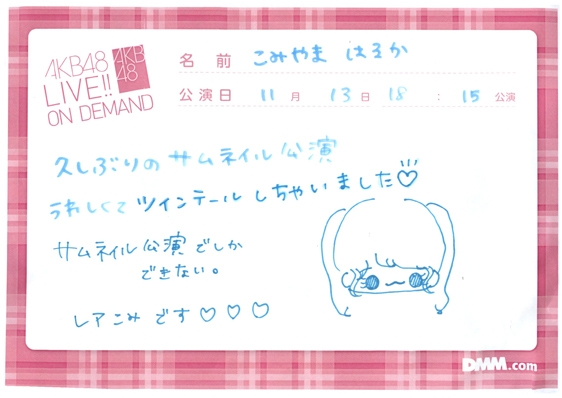 AKB48
LIVE!!
ON DEMAND
AKB
48
名前 こみやま はるか
公演日 11月 13日 18:15公演
久しぶりのサムネイル公演
うれしくてツインテールしちゃいました♡
サムネイル公演でしか
できない。
レアこみです♡♡♡
DMM.com